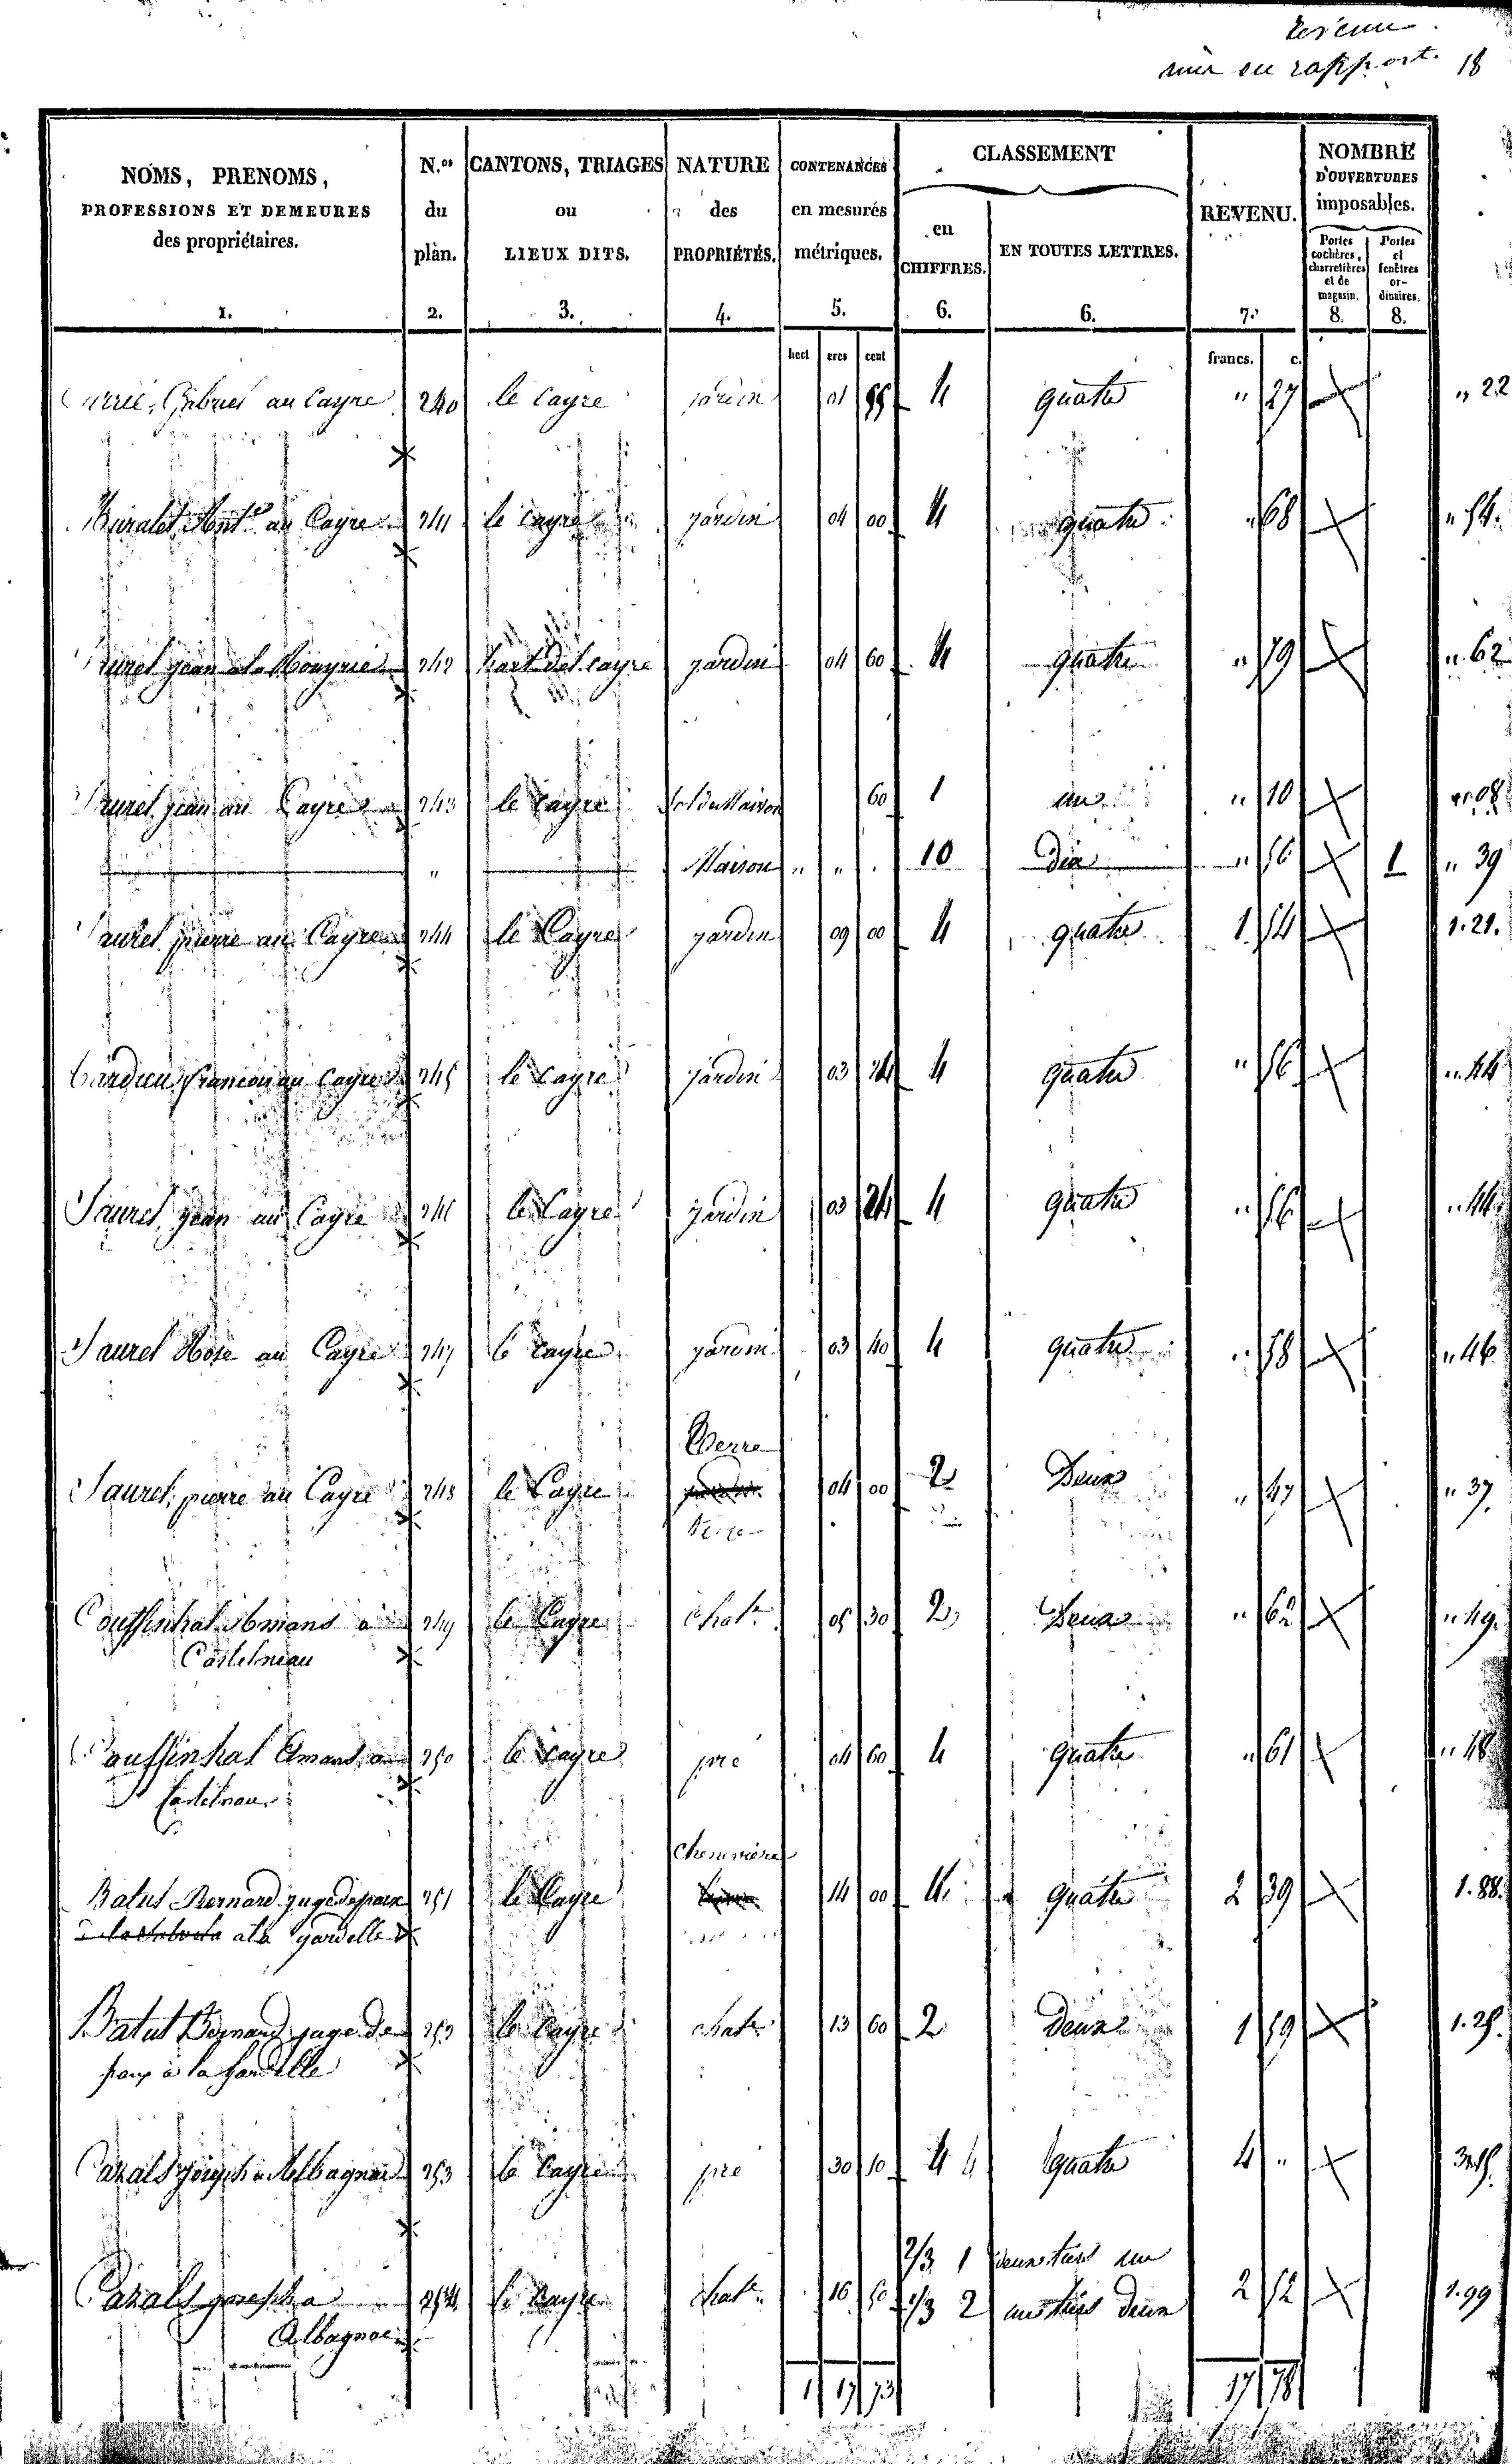 revenu
mis en rapport. 18
NOMS, PRENOMS,
PROFESSIONS ET DEMEURES
des propriétaires.
1.
N.os
du
plan.
2.
CANTONS, TRIAGES
ou
LIEUX DITS.
3.
NATURE
des
PROPRIÉTÉS.
4.
CONTENANCES
en mesures
métriques.
5.
CLASSEMENT
en
CHIFFRES.
6.
EN TOUTES LETTRES.
6.
REVENU.
7.
NOMBRE
D'OUVERTURES
imposables.
Portes cochères, charretières et de magasin.
8.
Portes et fenêtres ordinaires.
8.
hect ares cent francs. c.
Gabriel au Cayre 240 le Cayre jardin 01 4 quatre " 27 " 22
au Cayre 241 le Cayre jardin 04 00 4 quatre " 68 " 54.
jean 242 cayre jardin 04 60 4 quatre " 79 " 62
jean au Cayre 243 le Cayre Sol de Maison 60 1 un " 10 " 08
" Maison " " 10 Dix " 56 1 " 39
Sauret pierre au Cayre 244 le Cayre jardin 09 00 4 quatre 1 54 1.21.
au Cayre 245 le Cayre jardin 03 24 4 quatre " 56 " 44
Sauret jean au Cayre 246 le Cayre jardin 03 24 4 quatre " 56 " 44
Sauret au Cayre 247 le Cayre jardin 03 40 4 quatre " 58 " 46
Terre
Sauret pierre au Cayre 248 le Cayre 04 00 2 Deux " 47 " 37.
Couffinhal Amans a 249 le Cayre chat.e 05 30 2 Deux " 62 " 49.
Castelnau
Couffinhal Amans a 250 le Cayre pré 04 60 4 quatre " 61 " 48
Castelnau
Chenvière
Batut Bernard juge de paix 251 le Cayre 14 00 4 quatre 2 39 1.88.
a la gardelle
Batut Bernard juge de 252 le Cayre chat.e 13 60 2 Deux 1 59 1.25.
paix à la gardelle
Cazals joseph a Albagnac 253 le Cayre pré 30 10 4 4 quatre 4 "
2/3 1 deux tiers un
Cazals joseph a 254 le Cayre chat.e 16 50 1/3 2 un tiers deux 2 52 1.99
Albagnac
1 17 73 17 78